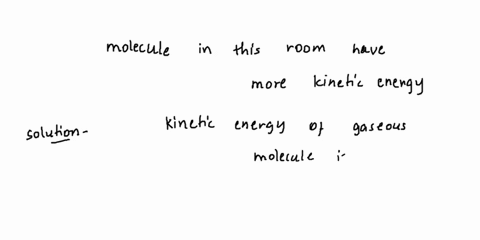 molecule in this room have
more kinetic energy
solution- kinetic energy of gaseous
molecule i-